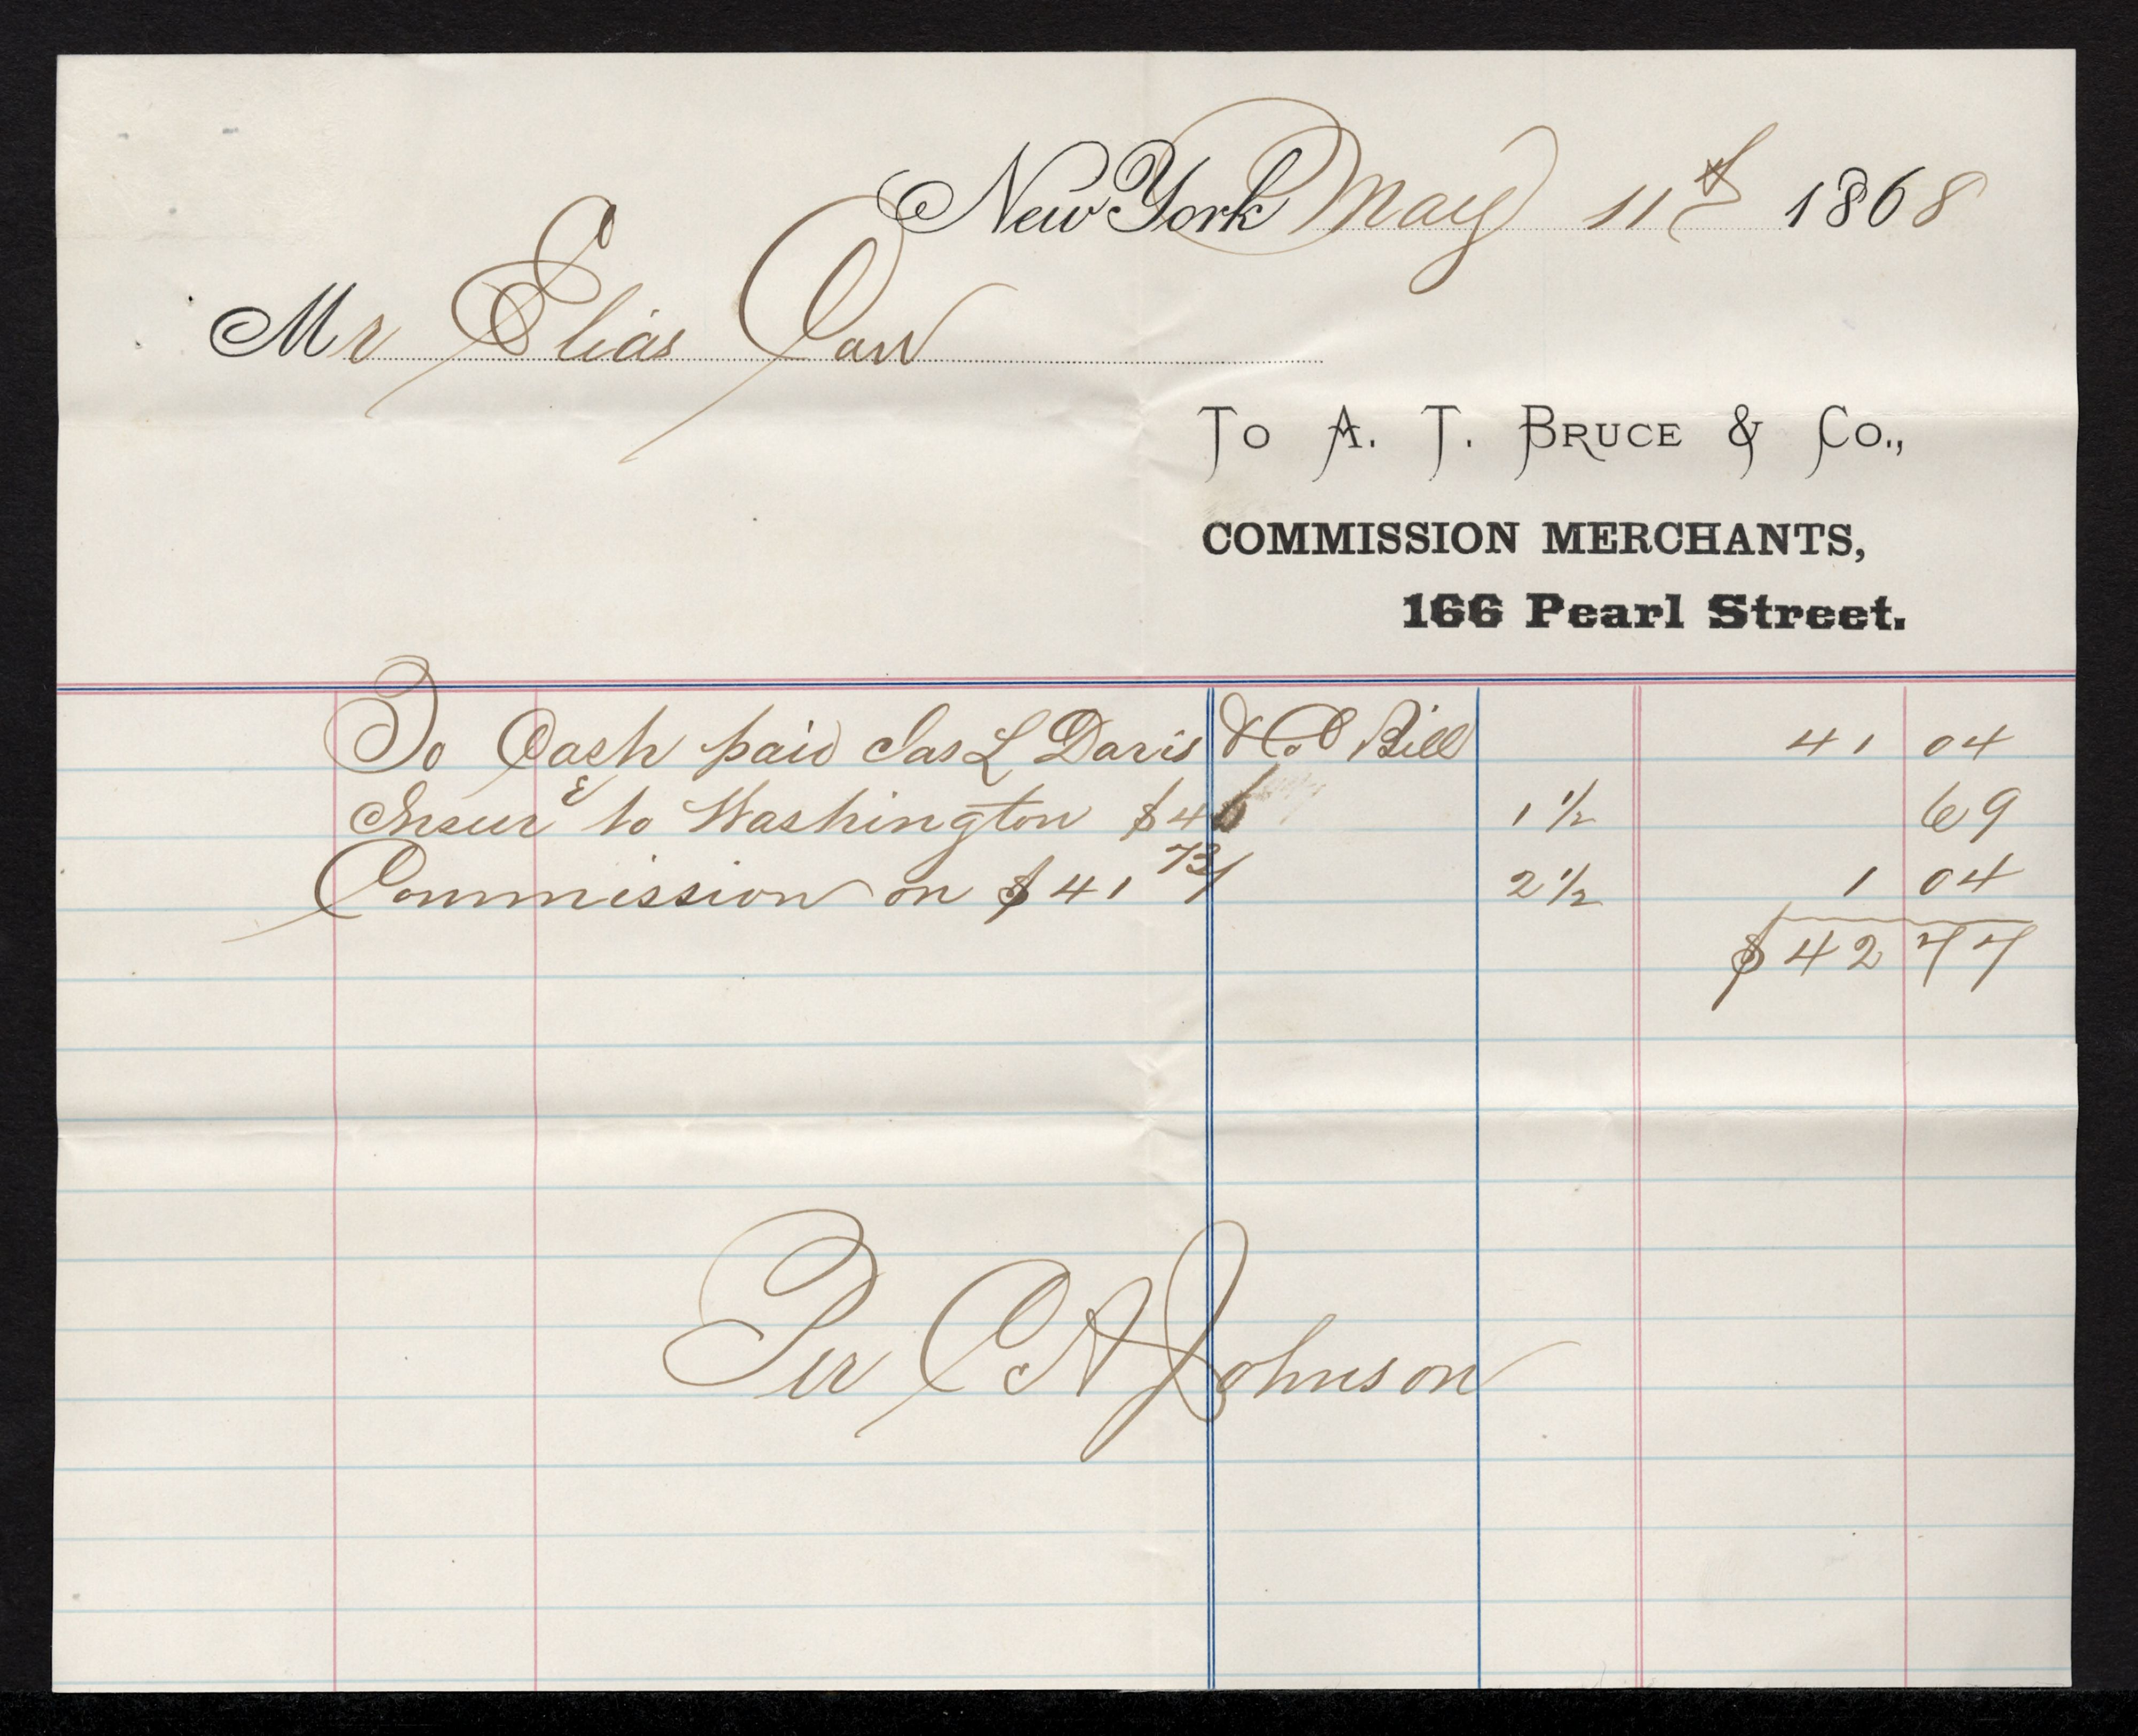 New York May 11th 1868
Mr Elias Carr
To A. T. Bruce & Co.,
COMMISSION MERCHANTS,
166 Pearl Street.
To Cash paid Jas L Davis & Co Bill 41 04
Insurce to Washington $46 1 1/2 69
Commission on $41 73/ 2 1/2 1 04
$42 77
Per C A Johnson